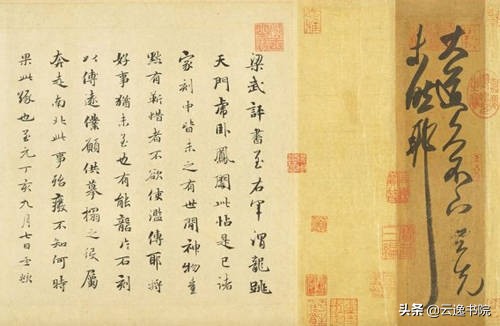 大道久不下与先
未然耶
梁武評書至右軍謂龍跳
天門虎卧鳳閣此帖是已諸
家刻中皆未之有世間神物豈
默有靳惜者不欲使濫傳耶将
好事猶未至也有能礱片石刻
以傳遠僕願供摹搨之役屬
奔走南北此事殆癈不知何時
果此緣也至元丁亥九月七日孟頫
头条 @云逸书院